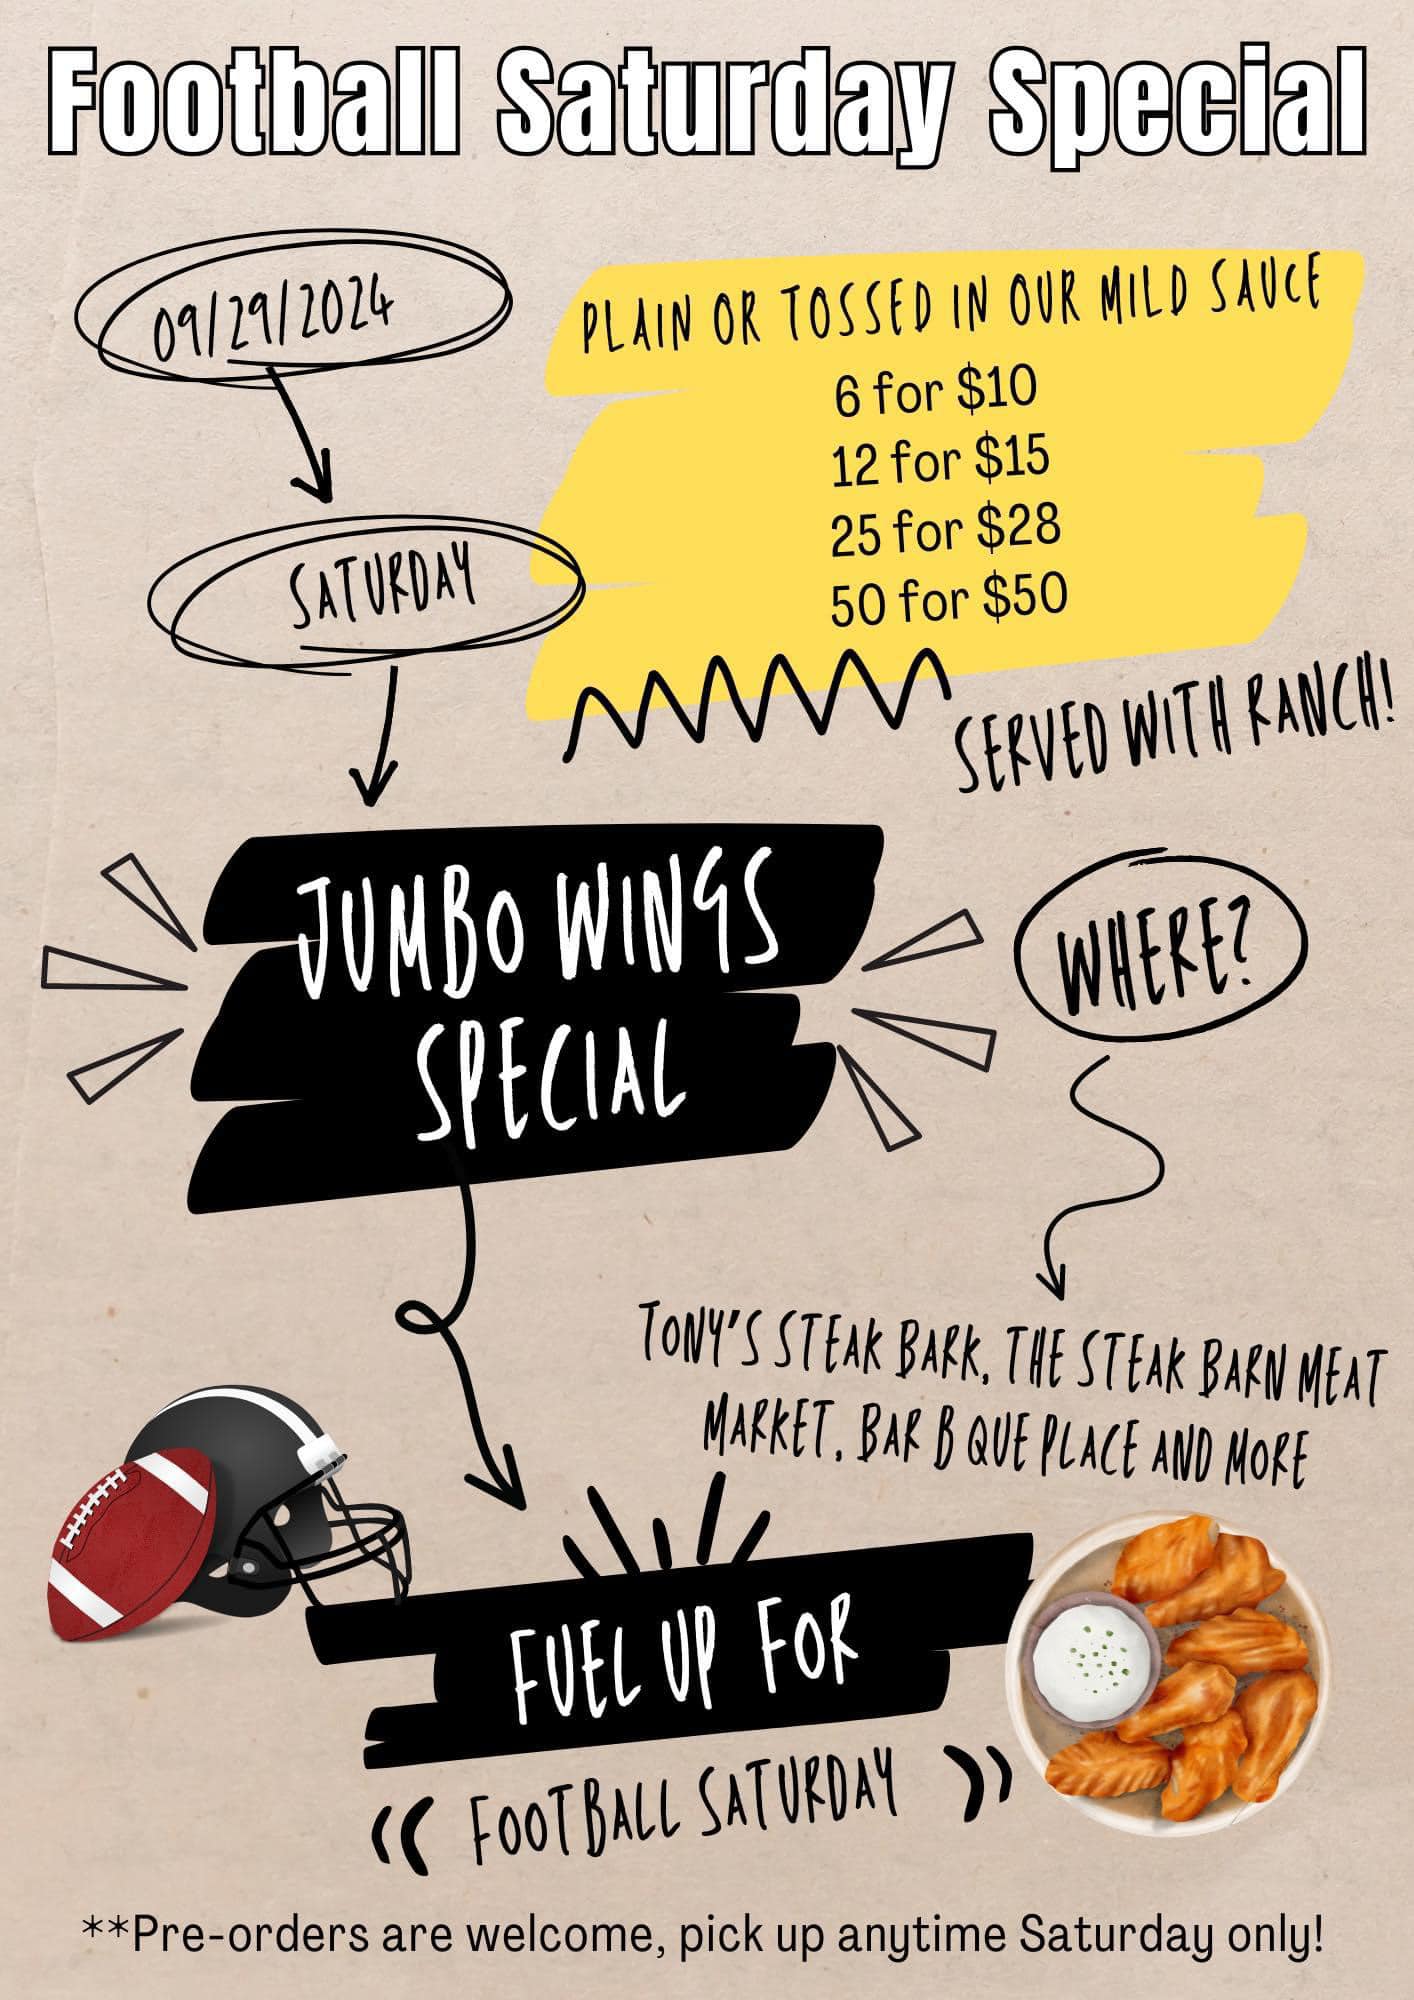 Football Saturday Special
09/29/2024
SATURDAY
PLAIN OR TOSSED IN OUR MILD SAUCE
6 for $10
12 for $15
25 for $28
50 for $50
SERVED WITH RANCH!
JUMBO WINGS
SPECIAL
WHERE?
TONY'S STEAK BARK, THE STEAK BARN MEAT
MARKET, BAR B QUE PLACE AND MORE
FUEL UP FOR
FOOTBALL SATURDAY
**Pre-orders are welcome, pick up anytime Saturday only!